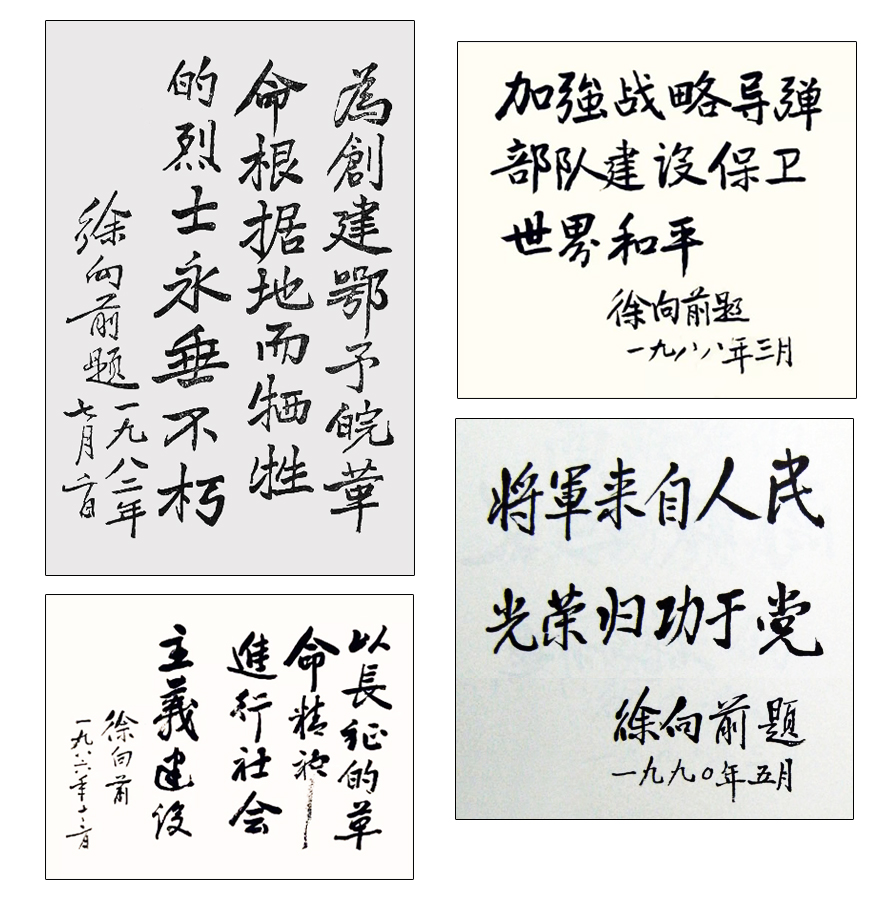 為創建鄂予皖革
命根据地而牺牲
的烈士永垂不朽
徐向前题
一九八二年
七月二日
加強战略导弹
部队建设保卫
世界和平
徐向前题
一九八八年三月
以長征的革
命精神
進行社会
主義建设
徐向前
一九八六年十二月
将軍来自人民
光荣归功于党
徐向前題
一九九〇年五月